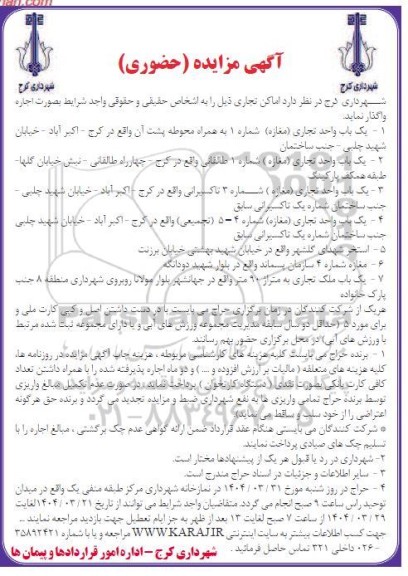 آگهی مزایده (حضوری)
شهرداری کرج
شهرداری کرج
شهرداری کرج در نظر دارد اماکن تجاری ذیل را به اشخاص حقیقی و حقوقی واجد شرایط بصورت اجاره
واگذار نماید.
۱ - یک باب واحد تجاری (مغازه) شماره ۱ به همراه محوطه پشت آن واقع در کرج - اکبر آباد - خیابان
شهید چلبی - جنب ساختمان
۲ - یک باب واحد تجاری (مغازه) شماره ۱ طالقانی واقع در کرج - چهارراه طالقانی - نبش خیابان گلها-
طبقه همکف پارکینگ
۳ - یک باب واحد تجاری (مغازه) شماره ۳ تاکسیرانی واقع در کرج - اکبر آباد - خیابان شهید چلبی -
جنب ساختمان شماره یک تاکسیرانی سابق
۴ - یک باب واحد تجاری (مغازه) شماره ۴ – ۵ (تجمیعی) واقع در کرج - اکبر آباد - خیابان شهید چلبی
جنب ساختمان شماره یک تاکسیرانی سابق
۵- استخر شهدای گلشهر واقع در خیابان شهید بهشتی خیابان برزنت
۶ - مغازه شماره ۴ سازمان پسماند واقع در بلوار شهید دودانگه
۷ - یک باب ملک تجاری به متراژ ۹۰ متر واقع در جهانشهر بلوار مولانا روبروی شهرداری منطقه ۸ جنب
پارک خانواده
هریک از شرکت کنندگان در زمان برگزاری حراج می بایست با در دست داشتن اصل و کپی کارت ملی و
برای مورد ۵ (حداقل دو سال سابقه مدیریت مجموعه ورزش های آبی و یا دارای مجموعه ثبت شده مرتبط
با ورزش های آبی) در محل برگزاری حضور بهم رسانند.
۱ - برنده حراج می بایست کلیه هزینه های کارشناسی مربوطه ، هزینه چاپ آگهی مزایده در روزنامه ها،
کلیه هزینه های متعلقه ( مالیات بر ارزش افزوده و .... ) و دو ماه اجاره پذیرفته شده را با همراه داشتن تعداد
کافی کارت بانکی بصورت نقدی (دستگاه کارتخوان) پرداخت نماید، در صورت عدم تکمیل مبالغ واریزی
توسط برنده حراج تمامی واریزی ها به نفع شهرداری ضبط و مزایده تجدید می گردد و برنده حق هرگونه
اعتراضی را از خود سلب و ساقط می نماید)
* شرکت کنندگان می بایستی هنگام عقد قرارداد ضمن ارائه گواهی عدم چک برگشتی ، مبالغ اجاره را با
تسلیم چک های صیادی پرداخت نمایند.
۲- شهرداری در رد یا قبول هر یک از پیشنهادها مختار است.
۳ - سایر اطلاعات و جزئیات در اسناد حراج مندرج است.
۴ - حراج در روز شنبه مورخ ۱۴۰۴/۰۳/۳۱ در نمازخانه شهرداری مرکز طبقه منفی یک واقع در میدان
توحید راس ساعت ۹ صبح انجام می گردد. متقاضیان واجد شرایط می توانند از تاریخ ۱۴۰۴/۰۳/۲۱ لغایت
۱۴۰۴/۰۳/۲۹ از ساعت ۷ صبح لغایت ۱۳ بعد از ظهر به جز ایام تعطیل جهت بازدید مراجعه نمایند ...
جهت کسب اطلاعات بیشتر به سایت اینترنتی WWW.KARAJ.IR مراجعه و یا با شماره ۳۵۸۹۲۴۲۱
-۰۲۶ داخلی ۳۲۱ تماس حاصل فرمائید .
شهرداری کرج – اداره امور قراردادها و پیمان ها